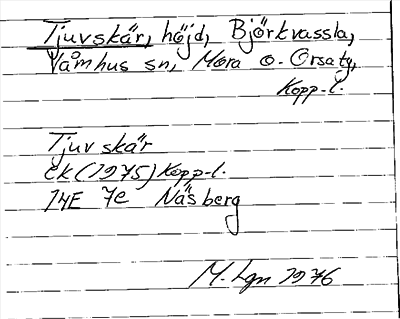 Tjuvskär, höjd, Björkvassla,
Våmhus sn, Mora o. Orsa tg,
Kopp. l.
Tjuvskär
Ek (1975) Kopp. l.
14E 7e Näsberg
M. Lgn 1976